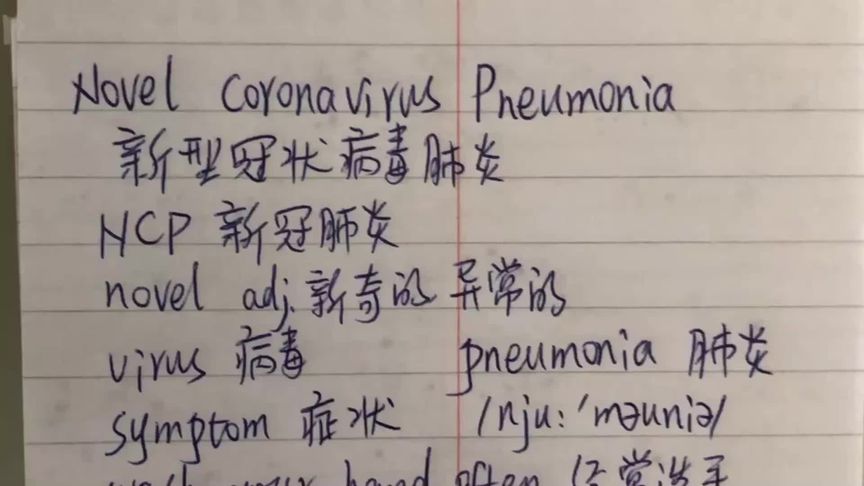 Novel Coronavirus Pneumonia
新型冠状病毒肺炎
NCP 新冠肺炎
novel adj. 新奇的 异常的
virus 病毒 pneumonia 肺炎
symptom 症状 /nju:'məuniə/
wash your hand often 经常洗手